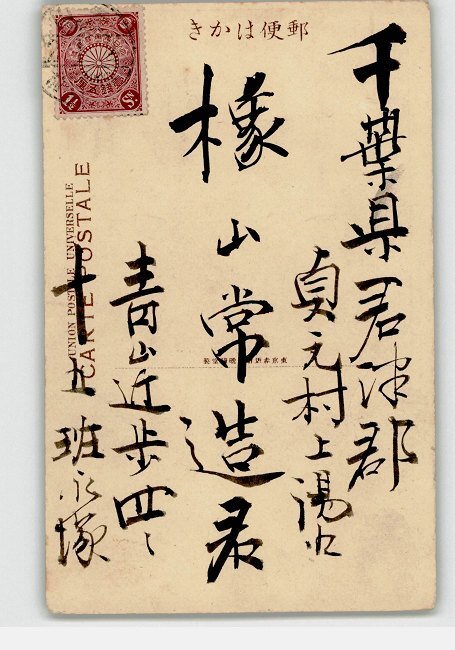 郵便はかき
千葉県君津郡
貞元村上湯江
椽山常造君
青山近歩四ノ
十五班永塚
UNION POSTALE UNIVERSELLE
CARTE POSTALE
1½ Sn